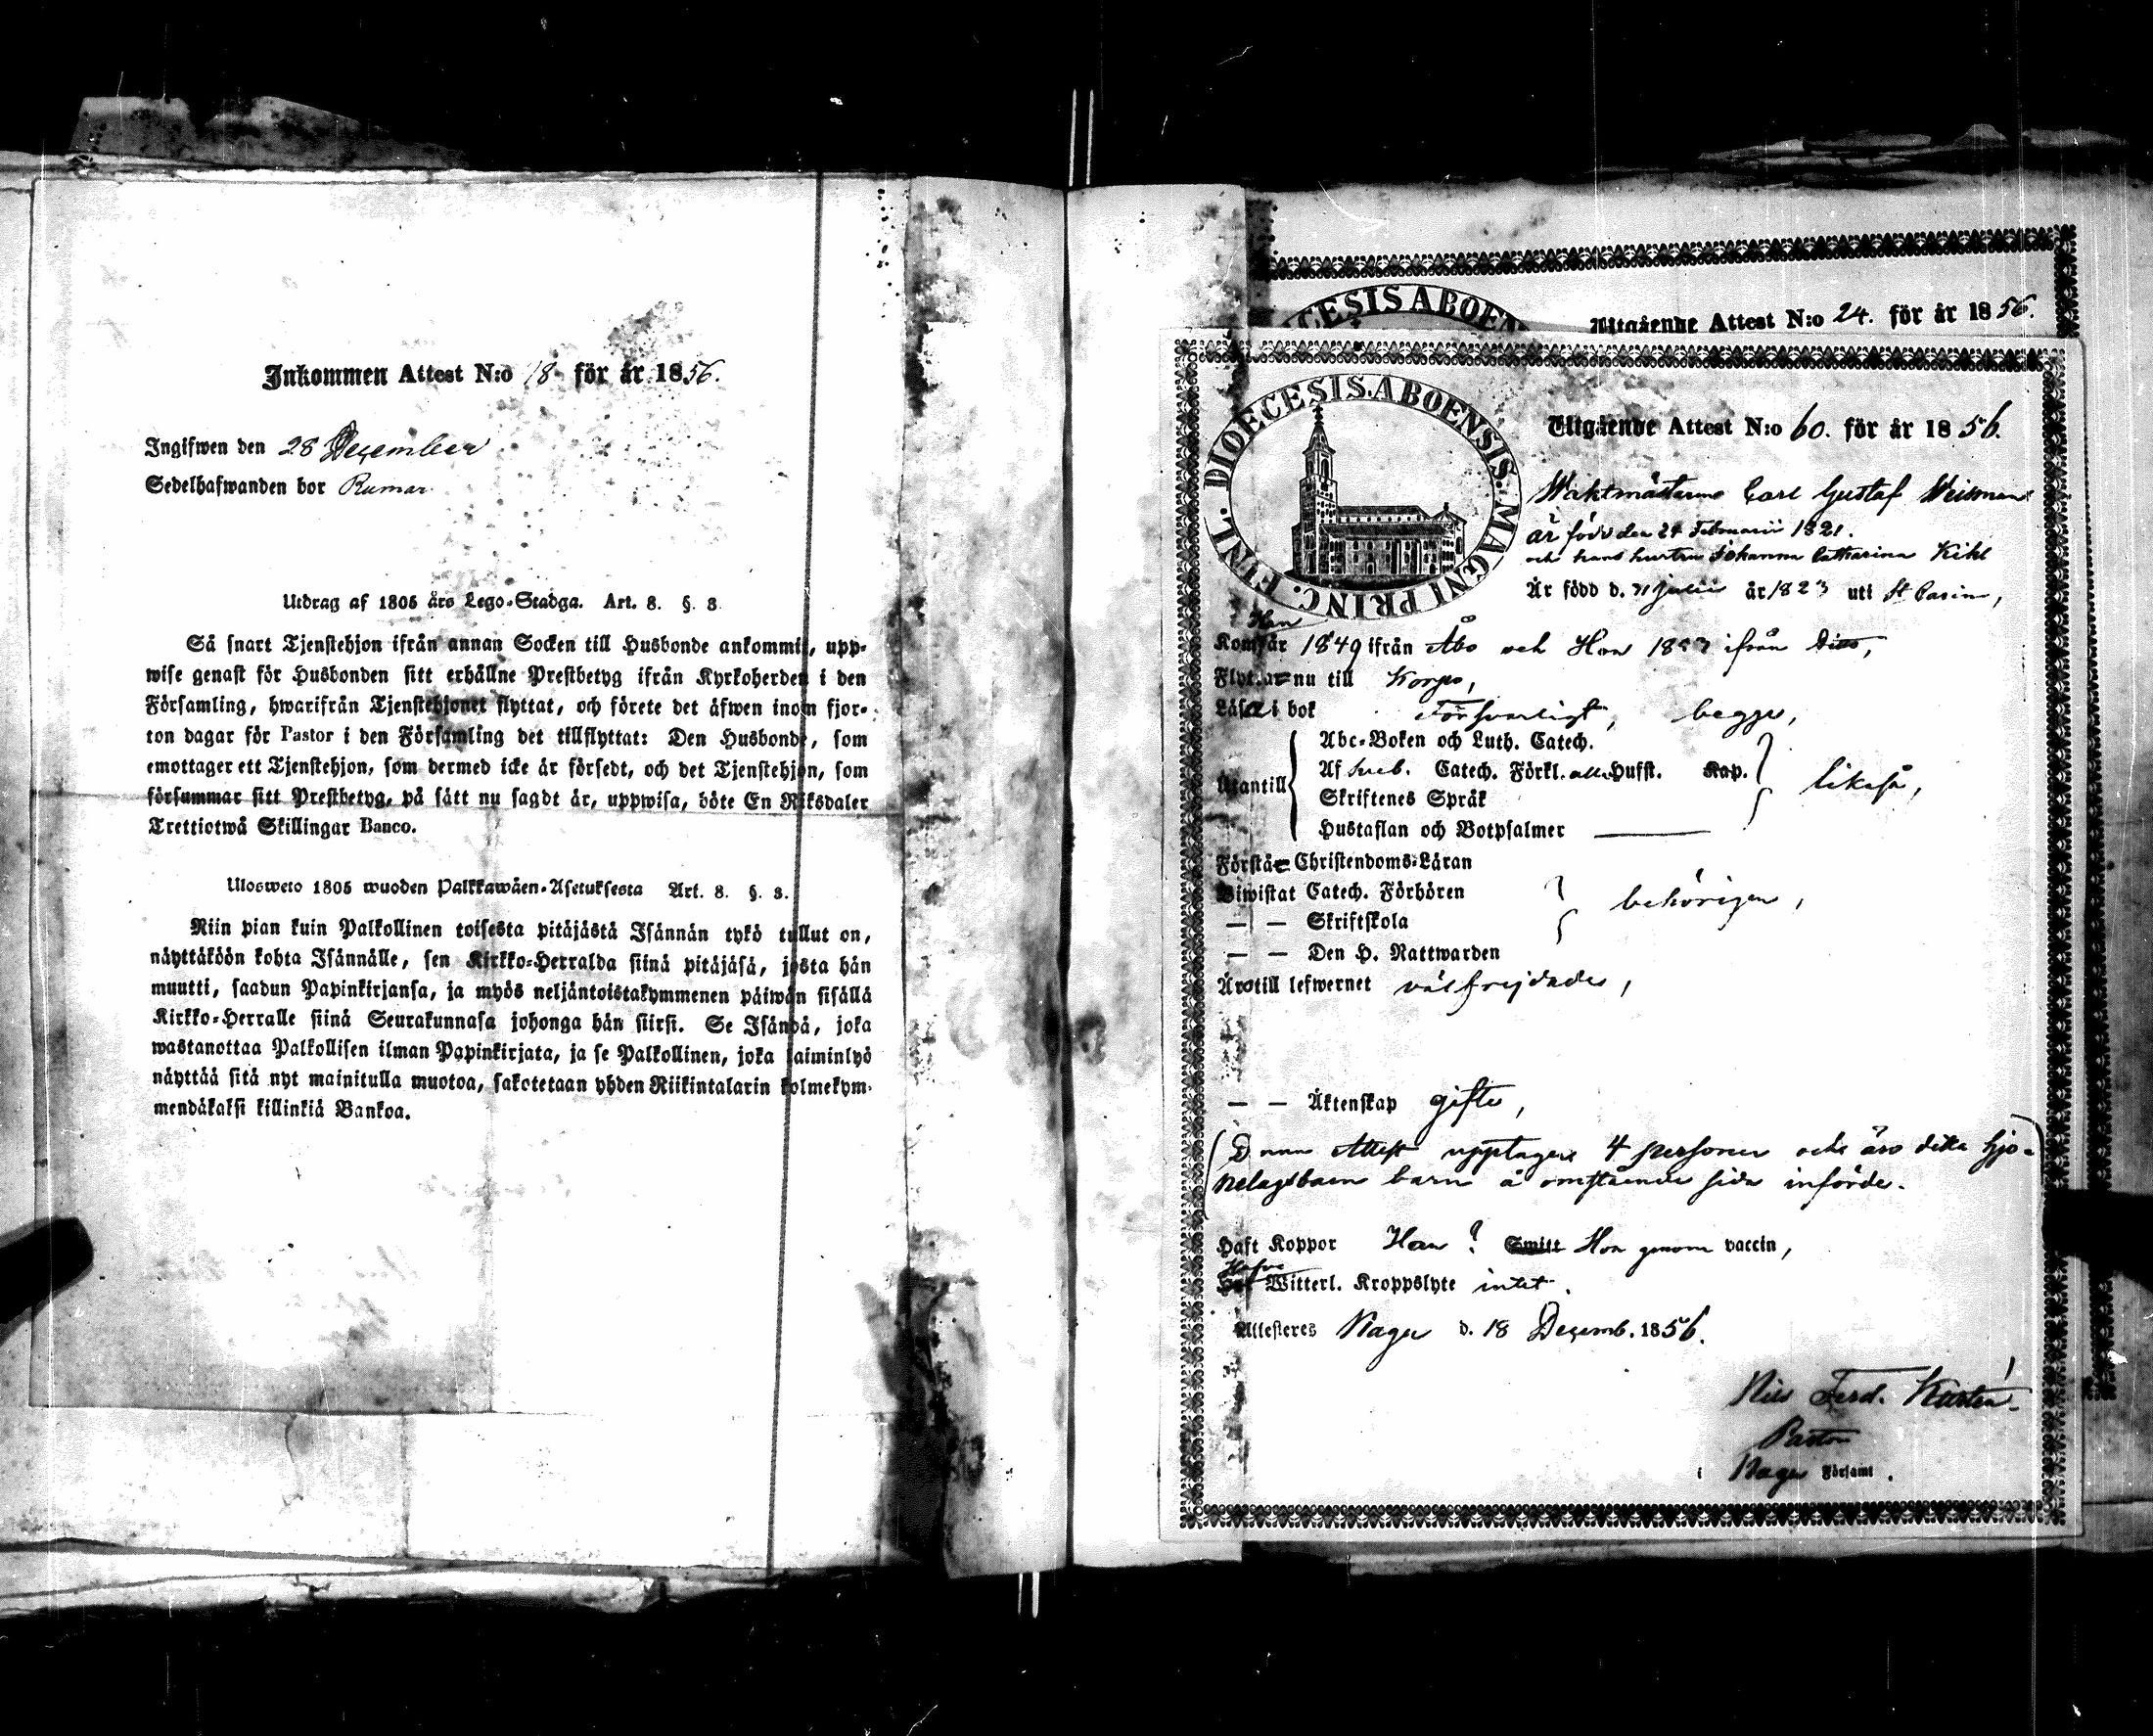 Inkommen Attest N:o 18 för år 1856.
Ingifwen den 28 December
Sedelhafwanden bor Rumar
Utdrag af 1805 års Lego-Stadga. Art. 8. §. 8.
Så snart Tjenstehjon ifrån annan Socken till Husbonde ankommit, upp-
wise genast för Husbonden sitt erhållne Prestbetyg ifrån Kyrkoherden i den
Församling, hwarifrån Tjenstehjonet flyttat, och förete det äfwen inom fjor-
ton dagar för Pastor i den Församling det tillflyttat: Den Husbonde, som
emottager ett Tjenstehjon, som dermed icke är försedt, och det Tjenstehjon, som
försummar sitt Prestbetyg, på sätt nu sagdt är, uppwisa, böte En Riksdaler
Trettiotwå Skillingar Banco.
Ulosweto 1805 wuoden Palkkawäen-Asetuksesta Art. 8. §. 8.
Niin pian kuin Palkollinen toisesta pitäjästä Isännän tykö tullut on,
näyttäköön kohta Isännälle, sen Kirkko-Herralda siinä pitäjäsä, josta hän
muutti, saadun Papinkirjansa, ja myös neljäntoistakymmenen päiwän sisällä
Kirkko-Herralle siinä Seurakunnasa johonga hän siirsi. Se Isändä, joka
wastanottaa Palkollisen ilman Papinkirjata, ja se Palkollinen, joka laiminlyö
näyttää sitä nyt mainitulla muotoa, sakotetaan yhden Riikintalarin kolmekym-
mendäkaksi killinkiä Bankoa.
DIOECESIS ABOEN
Utgående Attest N:o 24. för år 1856.
DIOECESIS. ABOENSIS. MAGNI PRINC. FINL.
Utgående Attest N:o 60. för år 1856.
Waktmästaren Carl Gustaf
är född den 24 Februarii 1821.
och hans hustru Johanna Catharina Kihl
Är född d. julii år 1823 uti St Carin,
Han
Kom år 1849 ifrån Åbo och Hon ifrån Ditto,
Flyt. nu till Korpo,
Läsa i bok Försvarligt, begge,
Utantill
Abc-Boken och Luth. Catech.
Af Sveb. Catech. Förkl. alla Hufst. Kap.
Skriftenes Språk
likaså,
Hustaflan och Botpsalmer
Förstå Christendoms-Läran
Biwistat Catech. Förhören
behörigen,
— — Skriftskola
— — Den H. Nattwarden
Äro till lefwernet välfrejdade,
— — Äktenskap gifte,
Denna Attest upptager 4 personer och äro detta hjo-
nelags barn å omstående sida införde.
Haft Koppor Han ? Smitt Hon genom vaccin,
Hafva
Witterl. Kroppslyte intet.
Attesteres Nagu d. 18 Decemb. 1856.
Nils Ferd.
Pastor
i Nagu Församl.